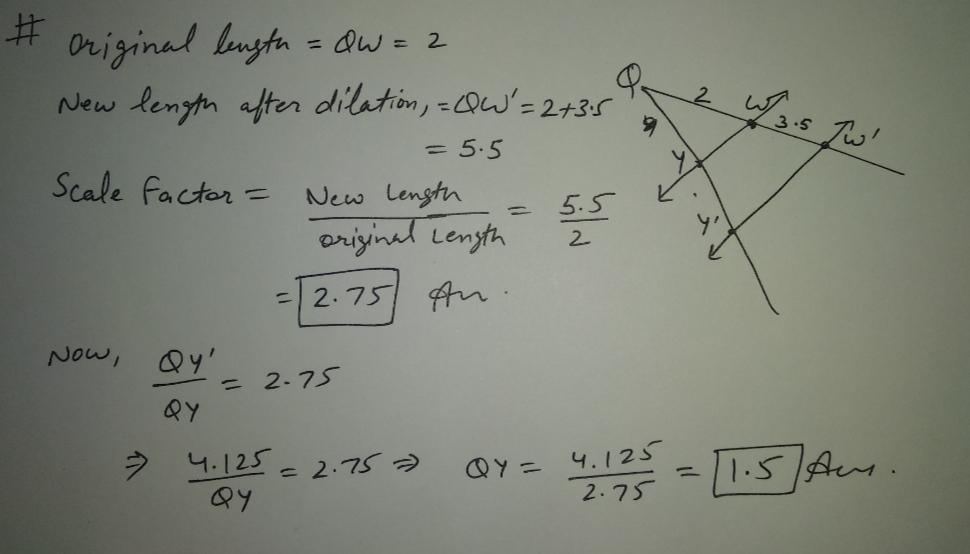 # Original length = QW = 2
New length after dilation, = QW' = 2+3.5
= 5.5
Scale Factor = New Length / original Length = 5.5 / 2
= 2.75 An.
Now, QY' / QY = 2.75
⇒ 4.125 / QY = 2.75 ⇒ QY = 4.125 / 2.75 = 1.5 Ans.
Q
2
W
3.5
W'
Y
Y'